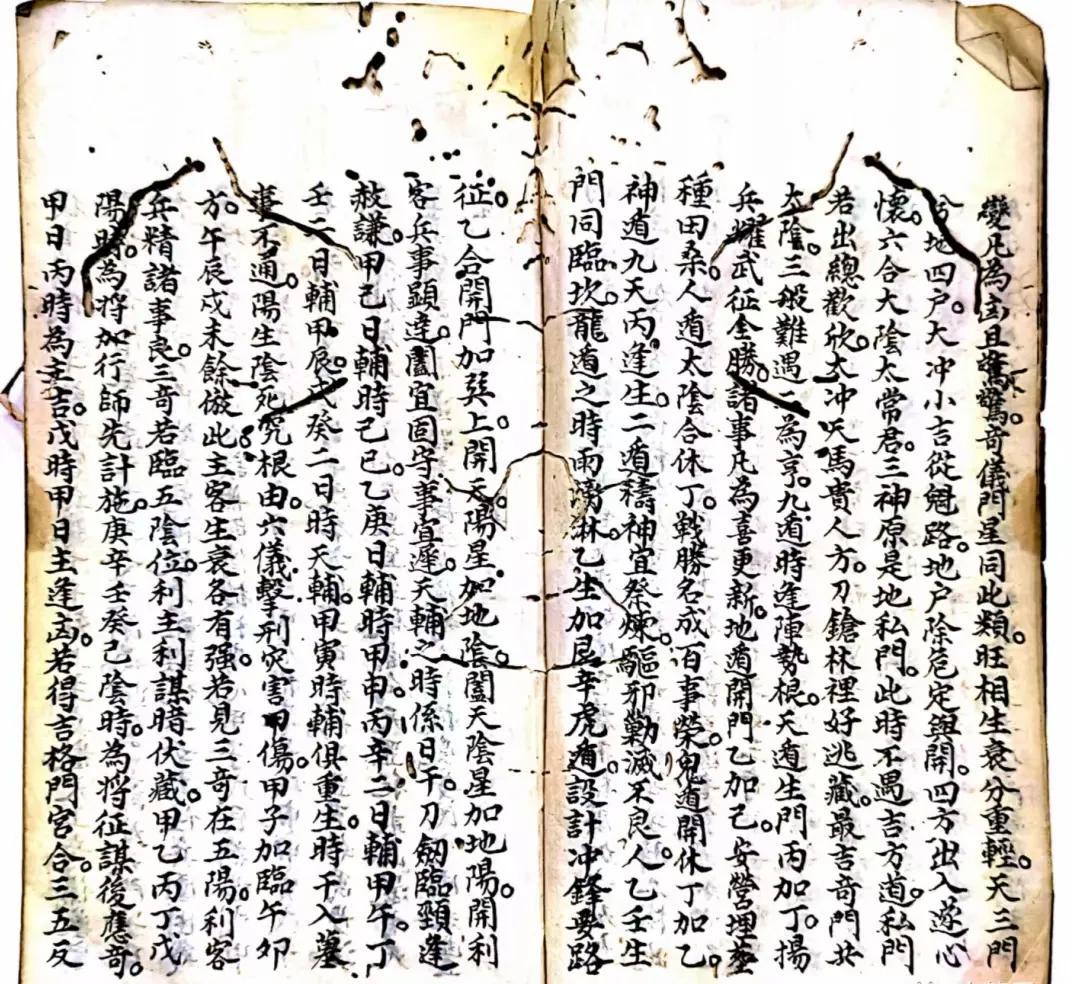 變凡為凶且驚驚奇儀門星同此類。旺相生衰分重輕。天三門
兮地四户。大冲小吉從魁路。地户除危定與開。四方出入遂心
懷。六合大陰太常君。三神原是地私門。此時不遇吉方道。私門
若出總歡欣。太冲天馬貴人方。刀鎗林裡好逃藏。最吉奇門共
太陰。三般難遇一為亨。九遁時逢陣勢根。天遁生門丙加丁。揚
兵耀武征全勝。諸事凡為喜更新。地遁開門乙加己。安營埋壘
種田桑。人遁太陰合休丁。戰勝名成百事榮。鬼遁開休丁加乙。
神遁九天丙逢生。二遁禱神宜祭煉。驅邪勦滅不良人。乙壬生
門同臨坎。龍遁之時雨淋。乙生加艮辛虎遁。設計冲鋒要路
征。乙合開門加巽上。開天陽星加地陰。闔天陰星加地陽。開利
客兵事顯達。闔宜固守事宜遲。天輔之時係日干。刀劒臨頸逢
赦謙。甲己日輔時己巳。乙庚日輔時甲申。丙辛二日輔甲午。丁
壬二日輔甲辰。戊癸二日時天輔。甲寅時輔俱重生。時干入墓
事不通。陽生陰死究根由。六儀擊刑灾害甲傷。甲子加臨午卯
方。午辰戌未餘倣此。主客生衰各有强。若見三奇在五陽。利客
兵精諸事良。三奇若臨五陰位。利主利謀暗伏藏。甲乙丙丁戊
陽時。為將加行師先計施。庚辛壬癸己陰時。為將征謀後應奇。
甲日丙時為主吉。戊時甲日主逢凶。若得吉格門宮合。三五反